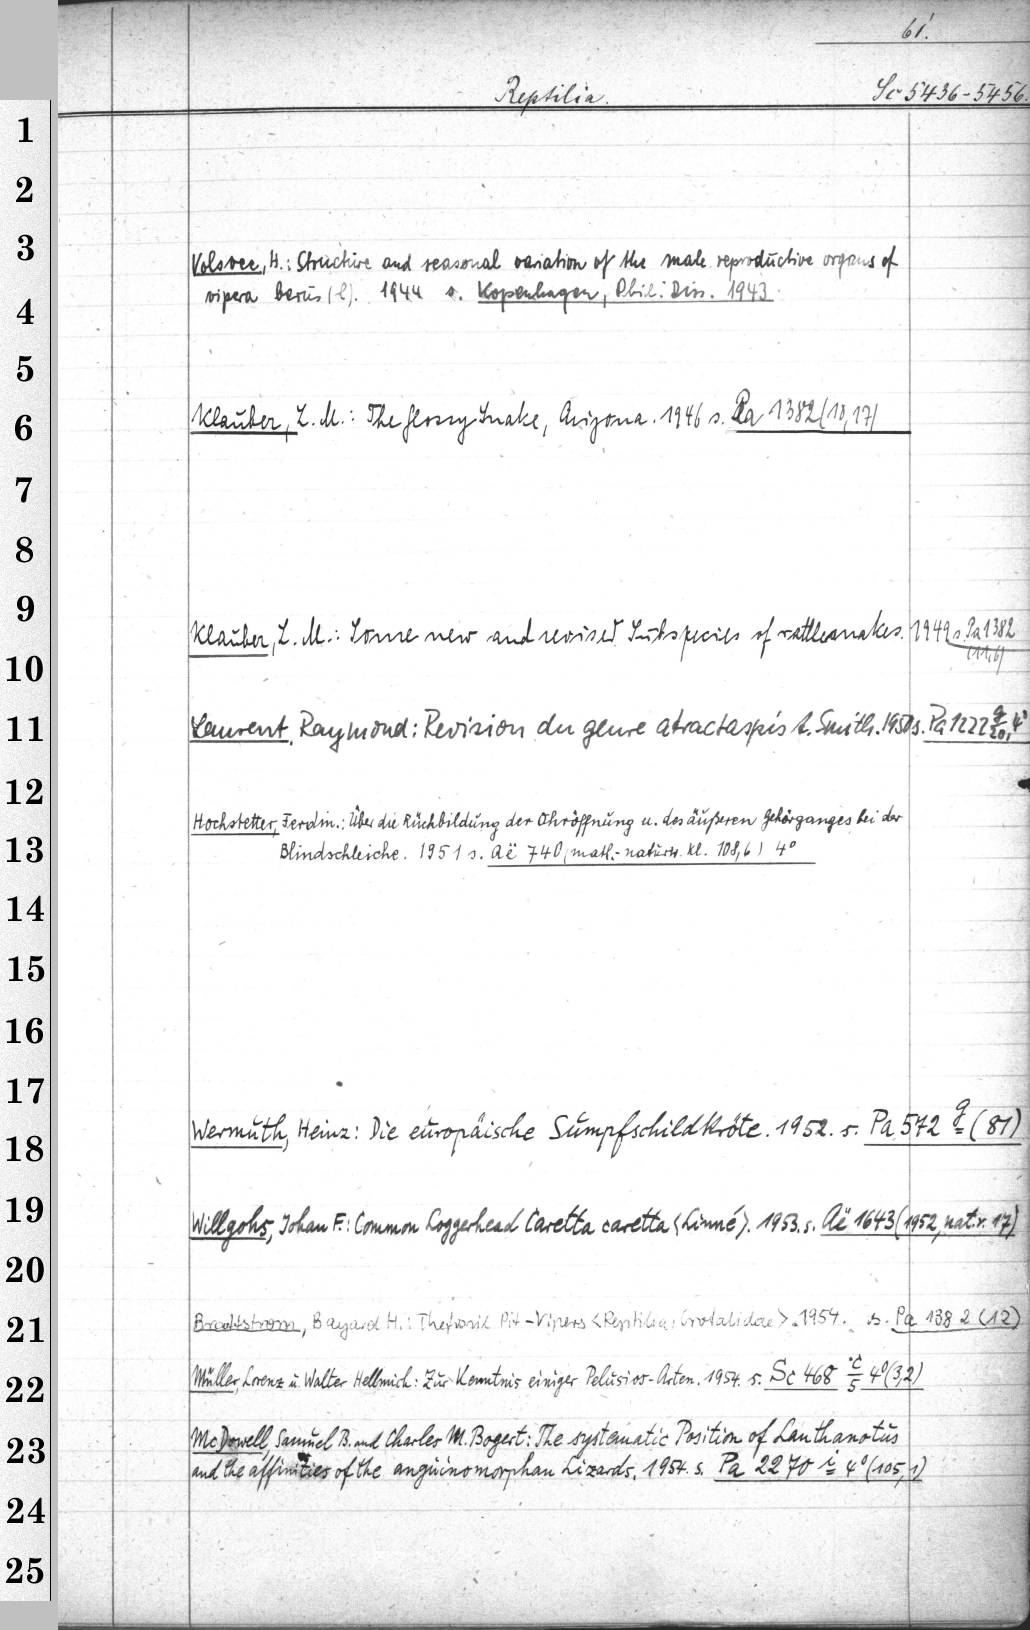 61.
Reptilia.
Sc 5436-5456.
1
2
3
Volsøee, H.: Structure and seasonal variation of the male reproductive organs of
4
vipera berus (L). 1944 s. Kopenhagen, Phil. Diss. 1943
5
6
Klauber, L. M.: The glossy Snake, Arizona. 1946 s. Pa 1382 (10,17)
7
8
9
Klauber, L. M.: Some new and revised Subspecies of rattlesnakes. 1949 s. Pa 1382
10
(11,6)
11
Laurent, Raymond: Revision du genre atractaspis A. Smith. 1950 s. Pa 1222 q/20, 4°
12
Hochstetter, Ferdin.: Über die Rückbildung der Ohröffnung u. des äußeren Gehörganges bei der
13
Blindschleiche. 1951 s. Aë 740, math.-naturw. Kl. 108,6) 4°
14
15
16
17
18
Wermuth, Heinz: Die europäische Sumpfschildkröte. 1952. s. Pa 572 q (81)
19
Willgohs, Johan F.: Common Loggerhead Caretta caretta <Linné>. 1953. s. Aë 1643 (1952, nat. r. 17)
20
21
Brattstrom, Bayard H.: The fossil Pit-Vipers <Reptilia, Crotalidae>. 1954. s. Pa 1382 (12)
22
Müller, Lorenz u. Walter Hellmich: Zur Kenntnis einiger Pelusios-Arten. 1954. s. Sc 468 c/5 4° (3,2)
23
McDowell, Samuel B. and Charles M. Bogert: The systematic Position of Lanthanotus
and the affinities of the anguinomorphan Lizards. 1954. s. Pa 2270 i 4° (105,1)
24
25